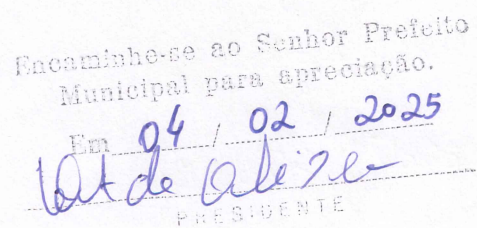 Encaminhe-se ao Senhor Prefeito
Municipal para apreciação.
Em 04 / 02 / 2025
PRESIDENTE